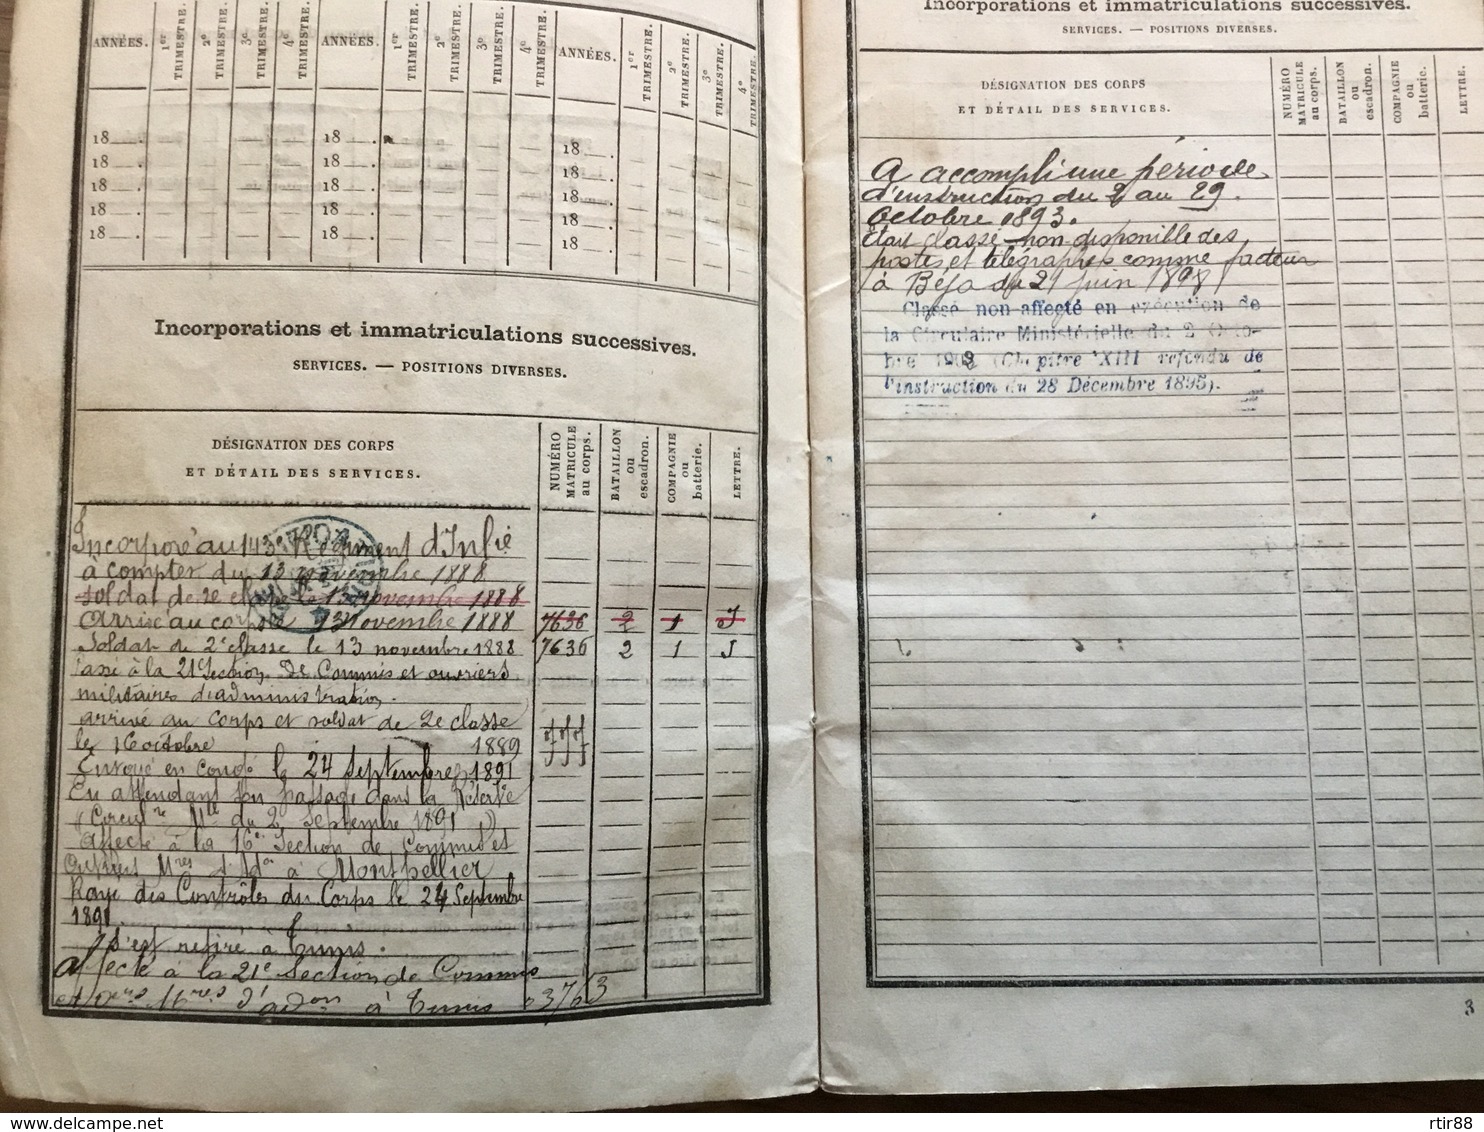 ANNÉES. 1er TRIMESTRE. 2e TRIMESTRE. 3e TRIMESTRE. 4e TRIMESTRE. ANNÉES. 1er TRIMESTRE. 2e TRIMESTRE. 3e TRIMESTRE. 4e TRIMESTRE. ANNÉES. 1er TRIMESTRE. 2e TRIMESTRE. 3e TRIMESTRE. 4e TRIMESTRE.
18 . 18 . 18 .
18 . 18 . 18 .
18 . 18 . 18 .
18 . 18 . 18 .
18 . 18 . 18 .
Incorporations et immatriculations successives.
SERVICES. — POSITIONS DIVERSES.
DÉSIGNATION DES CORPS
ET DÉTAIL DES SERVICES.
NUMÉRO MATRICULE au corps.
BATAILLON ou escadron.
COMPAGNIE ou batterie.
LETTRE.
Incorporé au 143e Régiment d'Infie
à compter du 13 novembre 1888
soldat de 2e classe le 13 novembre 1888
Arrivé au corps le 13 Novembre 1888 7636 2 1 J
Soldat de 2e classe le 13 novembre 1888 7636 2 1 J
à la 21e Section de Commis et ouvriers
militaires d'administration.
arrivé au corps et soldat de 2e classe
le 16 octobre 1889
Envoyé en congé le 24 Septembre 1891
En attendant son passage dans la Réserve
(Circulre Mlle du 2 Septembre 1891)
Affecté à la 16e Section de Commis et
Mres d'Adon à Montpellier
Rayé des Contrôles du Corps le 24 Septembre
1891.
s'est retiré à Tunis.
affecté à la 21e Section de Commis
et Ouers Mres d'adon à Tunis 03763
Incorporations et immatriculations successives.
SERVICES. — POSITIONS DIVERSES.
DÉSIGNATION DES CORPS
ET DÉTAIL DES SERVICES.
NUMÉRO MATRICULE au corps.
BATAILLON ou escadron.
COMPAGNIE ou batterie.
LETTRE.
A accompli une période
d'instruction du 2 au 29
Octobre 1893.
était classé non-disponible des
postes et télégraphes comme facteur
à Béja du 21 juin 1898
Classé non-affecté en exécution de
la Circulaire Ministérielle du 2 Octo-
bre 1903 (Chapitre XIII refondu de
l'instruction du 28 Décembre 1895).
3
delcampe.net
rtir88